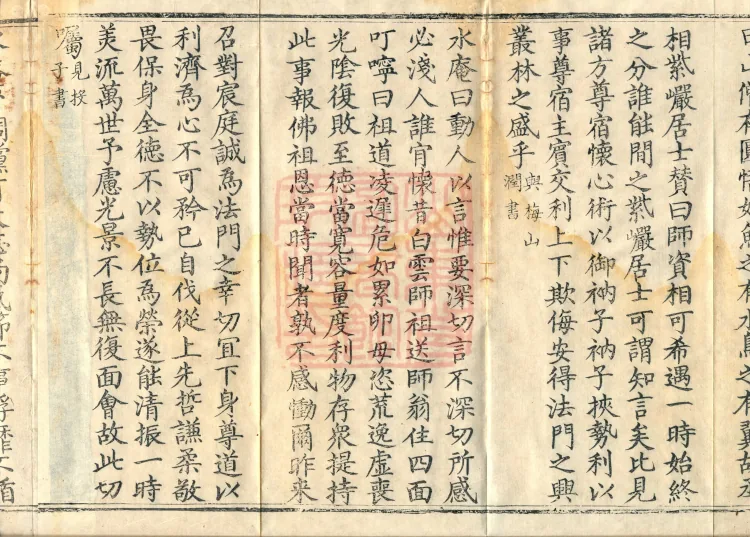 相紫巖居士贊曰師資相可希遇一時始終
之分誰能間之紫巖居士可謂知言矣比見
諸方尊宿懷心術以御衲子衲子挾勢利以
事尊宿主賓交利上下欺侮安得法門之興
叢林之盛乎與梅山
潤書
水庵曰動人以言惟要深切言不深切所感
必淺人誰肯懷昔白雲師祖送師翁住四面
叮嚀曰祖道凌遲危如累卵毋恣荒逸虛喪
光陰復敗至德當寬容量度利物存衆提持
此事報佛祖恩當時聞者孰不感慟爾昨來
召對宸庭誠為法門之幸切宜下身尊道以
利濟為心不可矜己自伐從上先哲謙柔敬
畏保身全德不以勢位為榮遂能清振一時
美流萬世予慮光景不長無復面會故此切
囑見投
子書